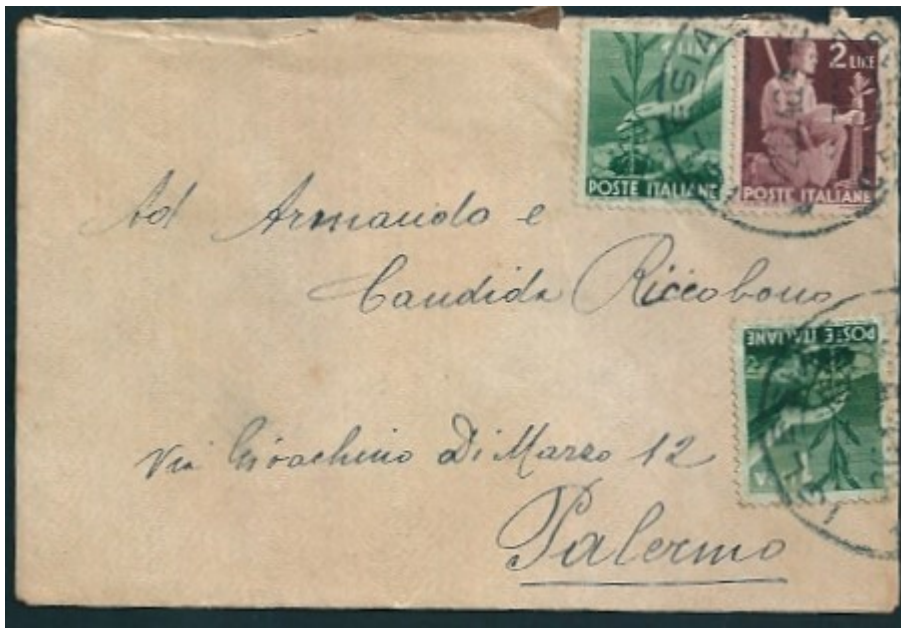 2 LIRE
POSTE ITALIANE
POSTE ITALIANE
Ad Armando e
Candida Riccobono
POSTE ITALIANE
Via Gioachino Di Marzo 12
Palermo